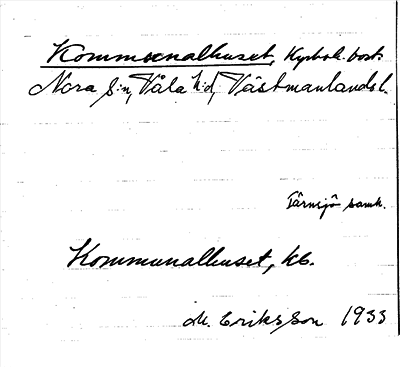 Kommunalhuset, Kyrkok. bost.
Nora s:n, Våla h:d, Västmanlands l.
Tärnsjö samh.
Kommunalhuset, kb.
M. Eriksson 1933